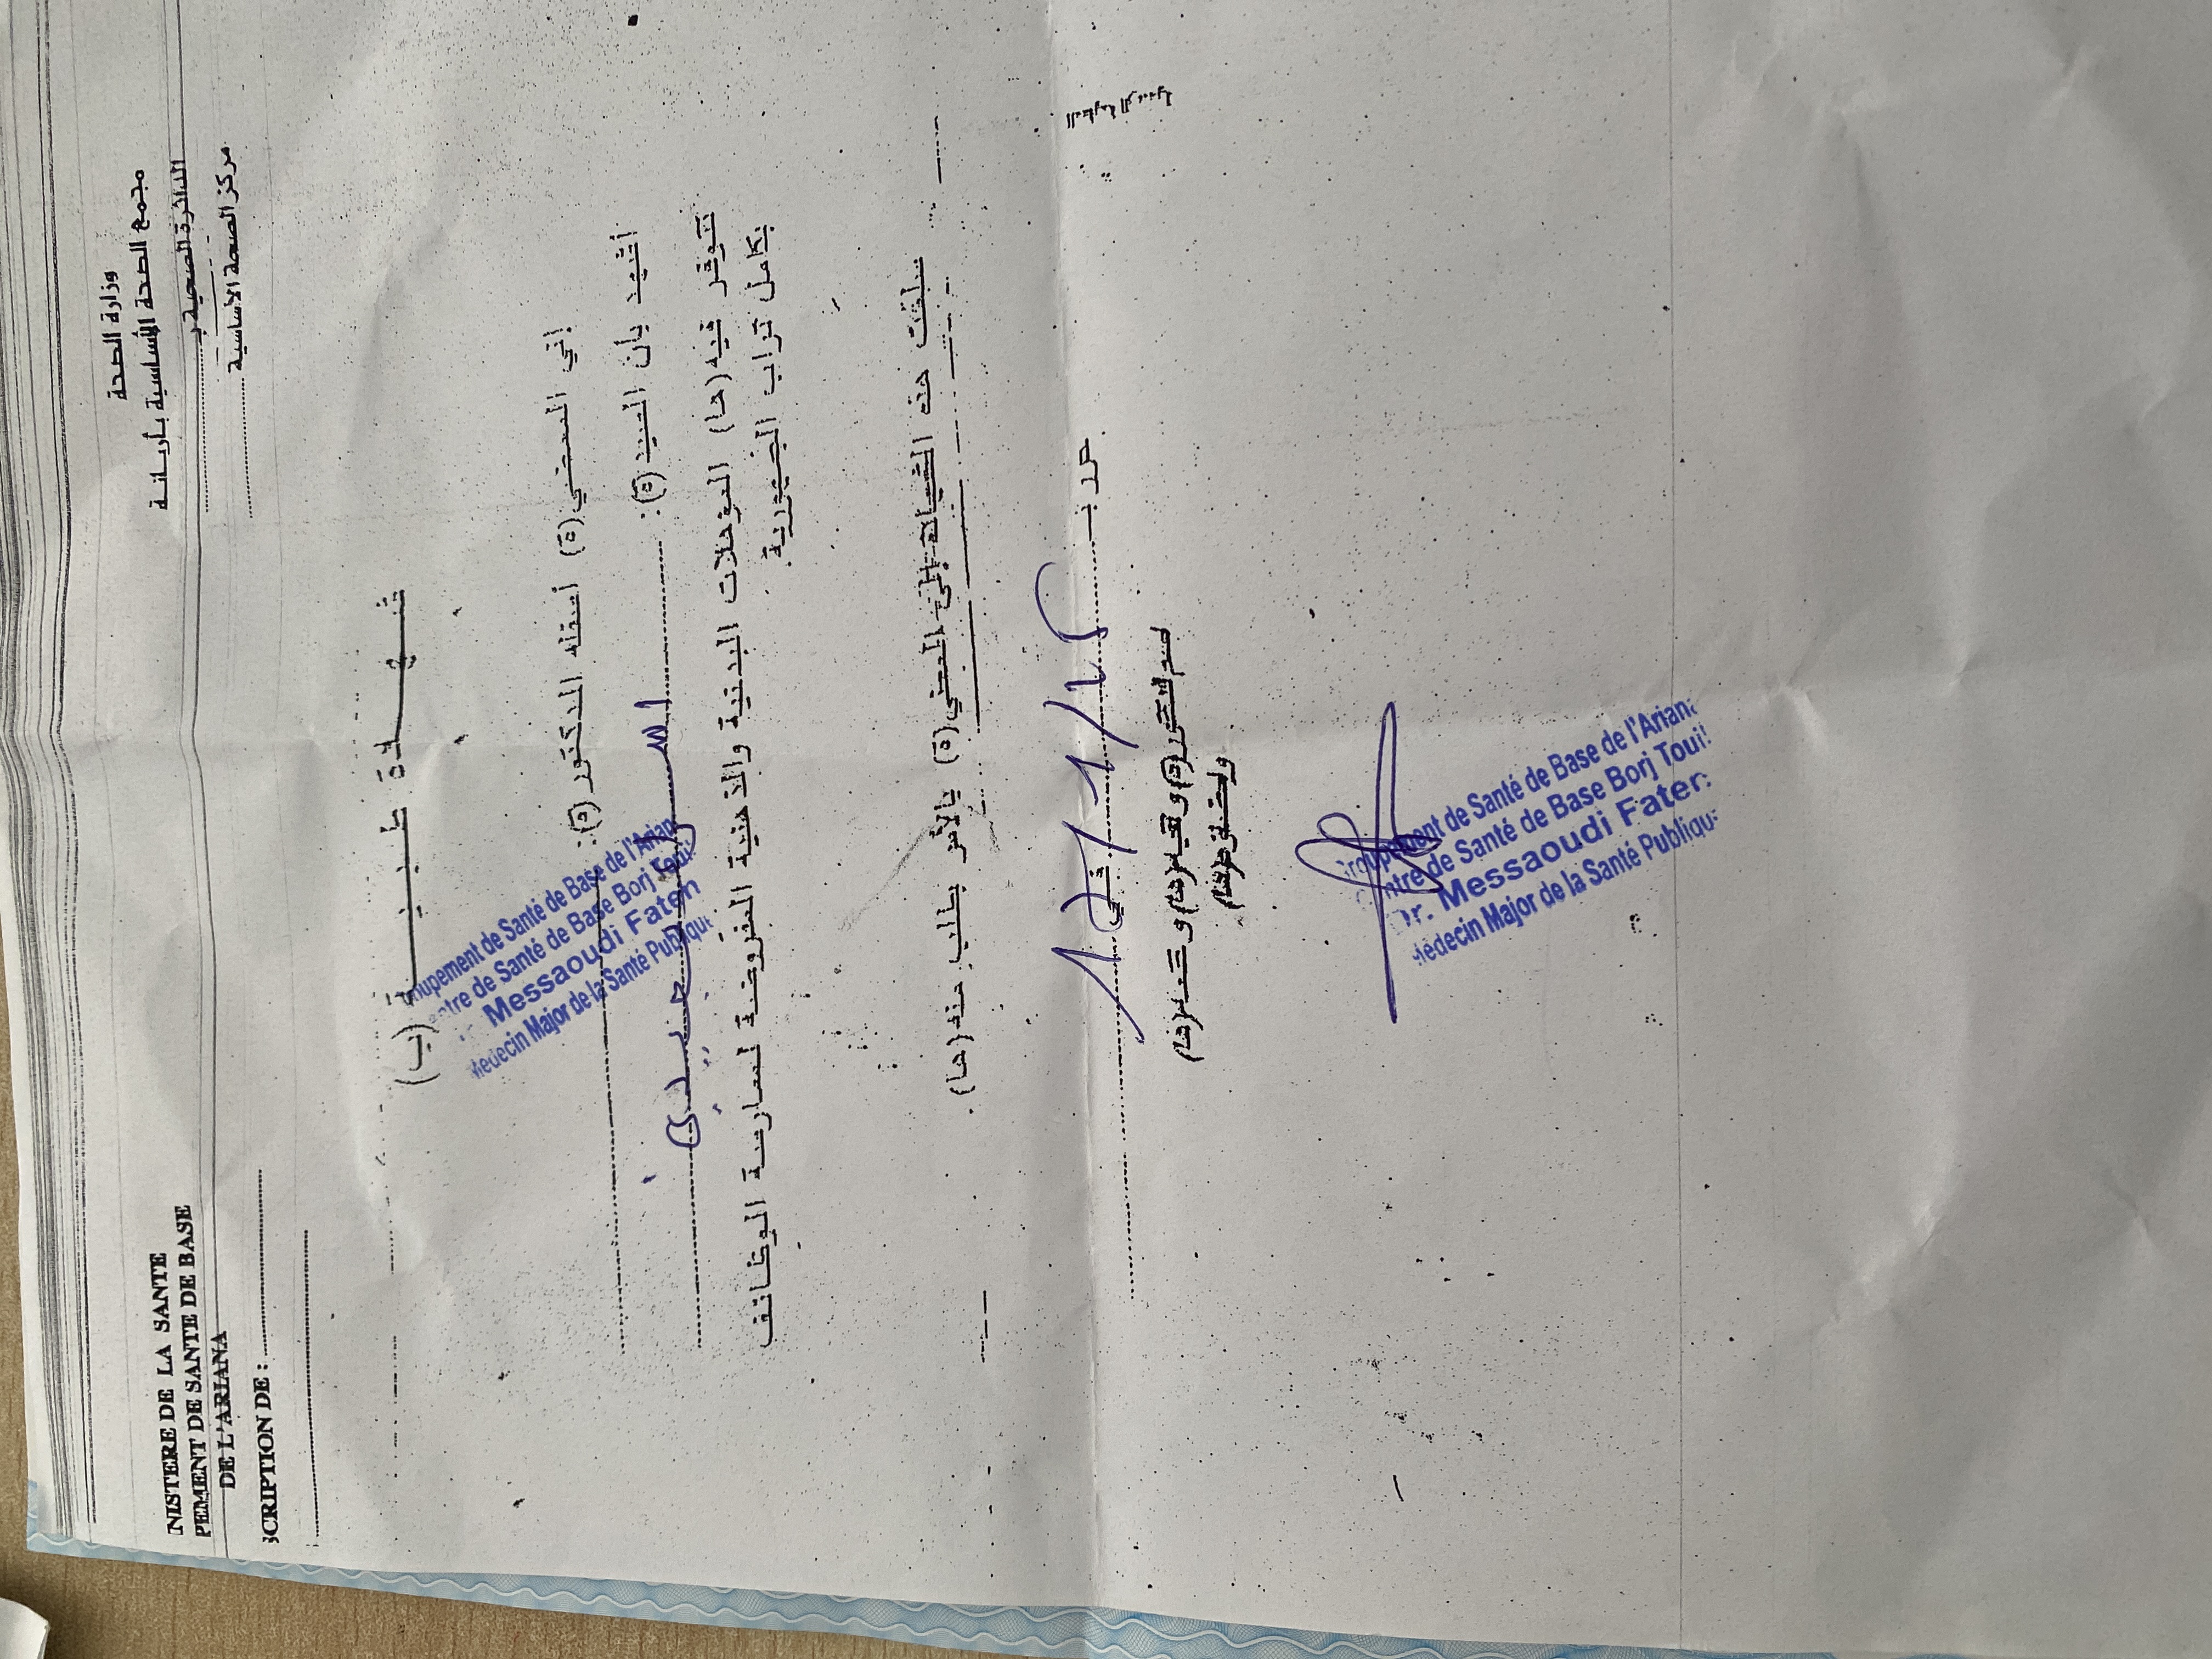 وزارة الصحة
مجمع الصحة الأساسية بأريانة
الدائرة الصحية بـ
مركز الصحة الأساسية
NISTERE DE LA SANTE
PEMENT DE SANTE DE BASE
DE L'ARIANA
SCRIPTION DE :
شهـــادة طبيـــة
(ب)
إني الممضي (ة) أسفله الدكتور (ة):
أشهد بأن السيد (ة):
تتوفر فيه (ها) المؤهلات البدنية والذهنية المفروضة لممارسة الوظائف
بكامل تراب الجمهورية.
oupement de Santé de Base de l'Arian
ntre de Santé de Base Borj Toui
Messaoudi Faten
Médecin Major de la Santé Publique
سلمت هذه الشهادة إلى المعني (ة) بالأمر بطلب منه (ها).
حرر بـ في
Groupement de Santé de Base de l'Ariana
ntre de Santé de Base Borj Touil
Dr. Messaoudi Faten
Médecin Major de la Santé Publique